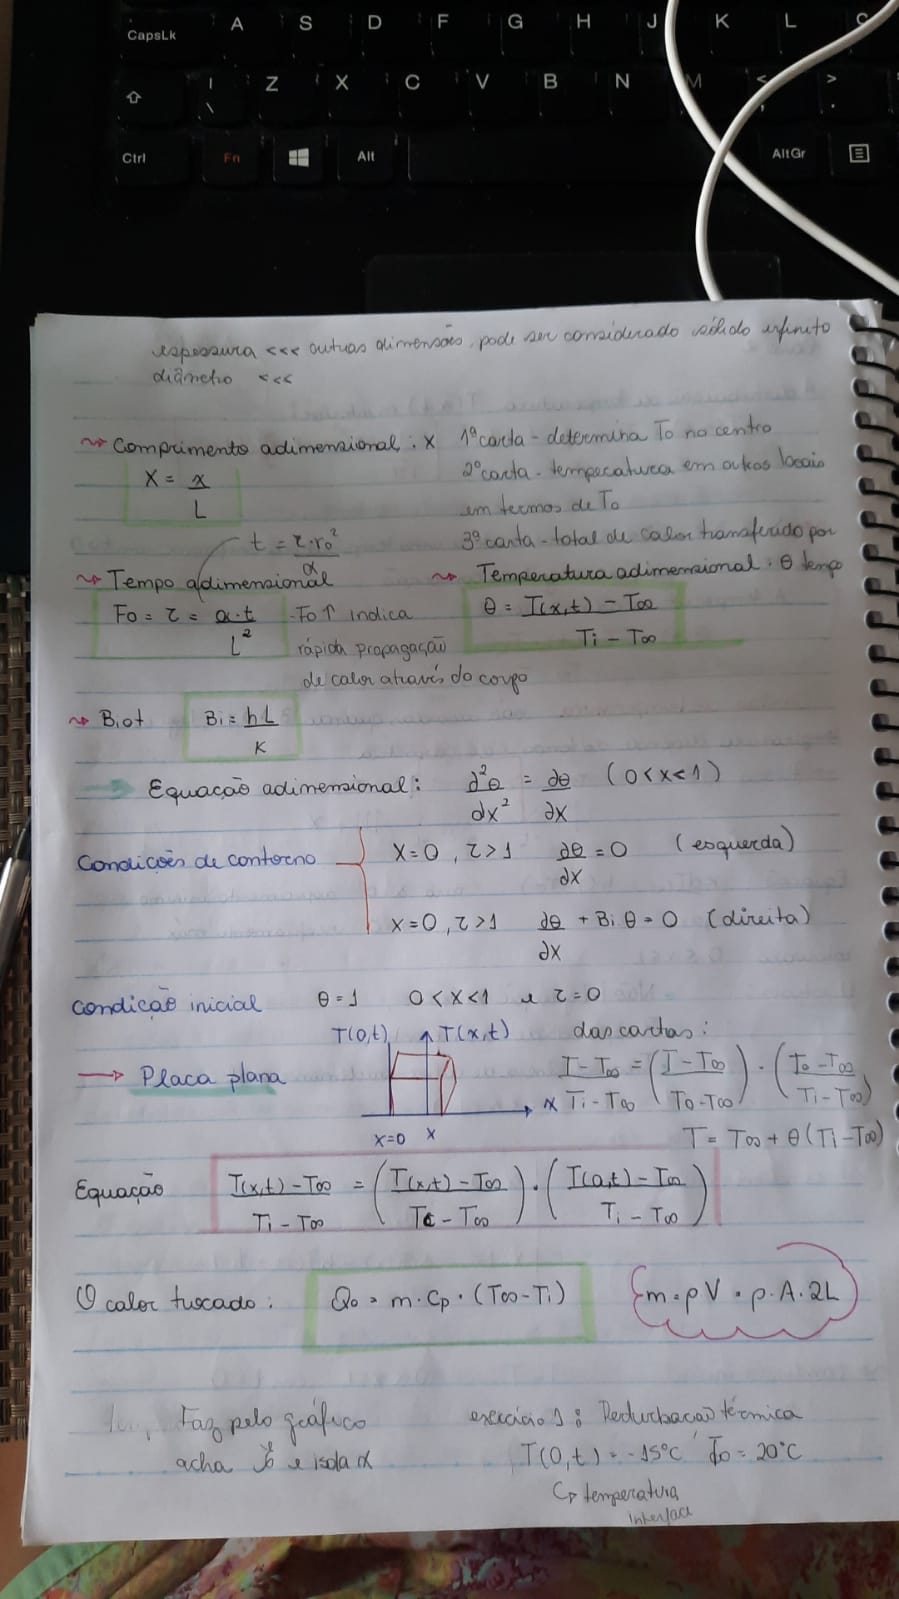 CapsLk A S D F G H J K L Ç
⇧ | \ Z X C V B N M < , > .
Ctrl Fn Alt AltGr
espessura <<< outras dimensão, pode ser considerado sólido infinito
diâmetro <<<
Comprimento adimensional: X
X = x/L
1ª carta - determina To no centro
2ª carta - temperatura em outros locais
em termos de To
3ª carta - total de calor transferido por
tempo
t = τ·r₀²/α
Tempo adimensional
Fo = τ = α·t/L²
Fo↑ indica
rápida propagação
de calor através do corpo
Temperatura adimensional: θ
θ = T(x,t) - T∞ / Ti - T∞
Biot Bi = hL/K
→ Equação adimensional: ∂²θ/dx² = ∂θ/∂x (0<x<1)
Condições de contorno
X=0, τ>1 ∂θ/∂X = 0 (esquerda)
X=0, τ>1 ∂θ/∂X + Bi θ = 0 (direita)
condição inicial θ=1 0<X<1 e τ=0
→ Placa plana
T(0,t) T(x,t)
x
X=0 X
das cartas:
T-T∞/Ti-T∞ = (T-T∞/To-T∞) · (To-T∞/Ti-T∞)
T = T∞ + θ(Ti-T∞)
Equação T(x,t)-T∞/Ti-T∞ = (T(x,t)-T∞/Tc-T∞) · (T(0,t)-T∞/Ti-T∞)
O calor trocado: Qo = m·Cp·(T∞-Ti) m=ρV=ρ·A·2L
Faz pelo gráfico
acha e isola α
exercício 1: Perturbacao térmica
T(0,t) = -15°C To = 20°C
↳ temperatura
interface